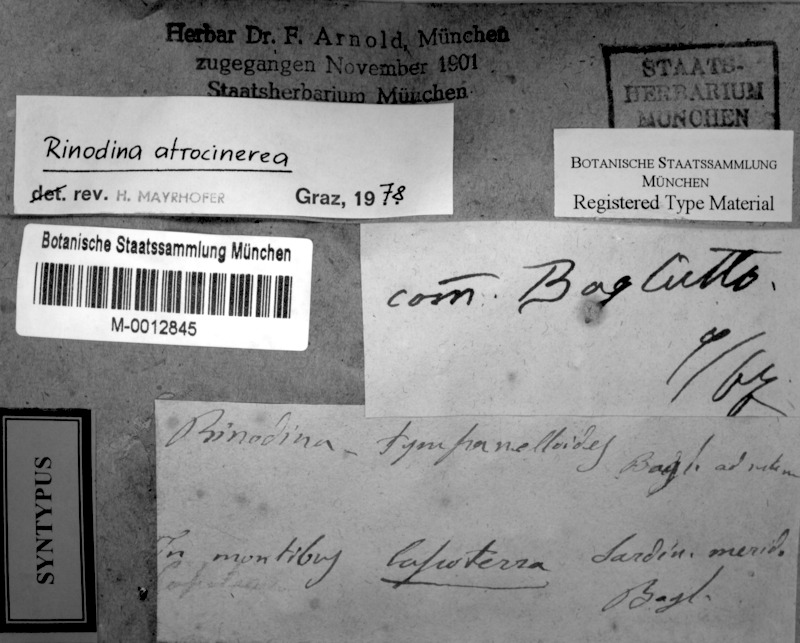 Herbar Dr. F. Arnold, München
zugegangen November 1901
Staatsherbarium München
STAATS-
HERBARIUM
MÜNCHEN
Rinodina atrocinerea
det. rev. H. MAYRHOFER Graz, 1978
BOTANISCHE STAATSSAMMLUNG
MÜNCHEN
Registered Type Material
Botanische Staatssammlung München
M-0012845
com. Baglietto.
9/67
SYNTYPUS
Rinodina tympanelloides Bagl. ad
In montibus Capoterra Sardin. merid.
Bagl.